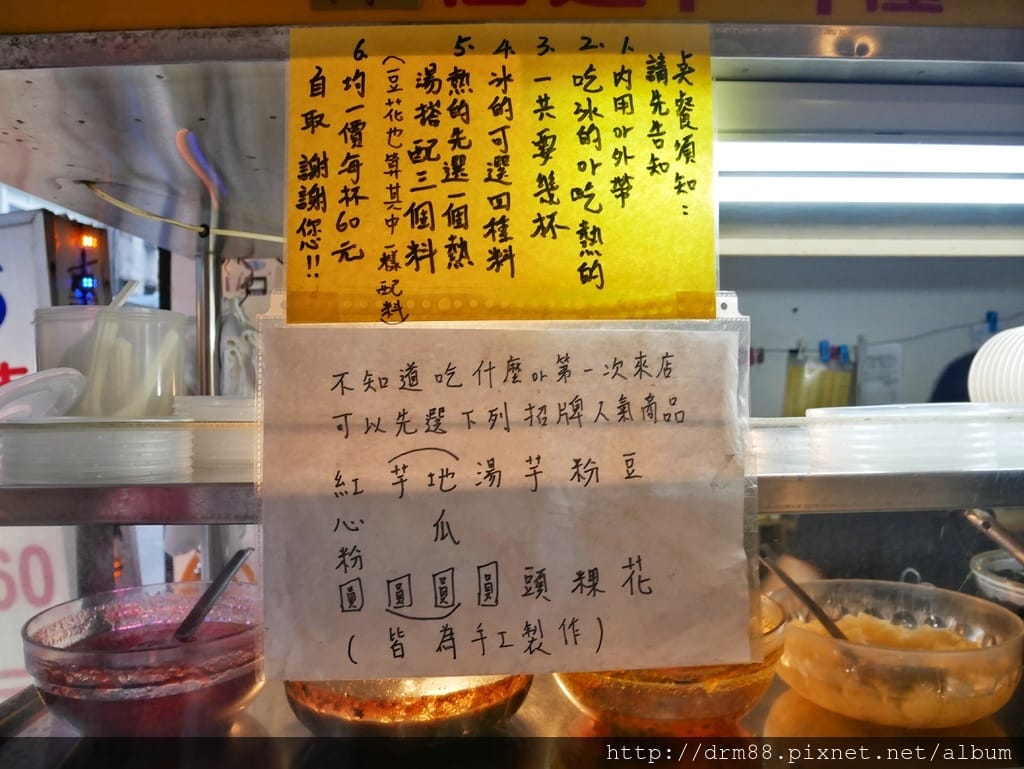 奌餐須知：
請先告知
1. 內用or外帶
2. 吃冰的or吃熱的
3. 一共要幾杯
4. 冰的可選四種料
5. 熱的先選一個熱
湯搭配三個料
(豆花也算其中一樣配料)
6. 均一價每杯60元
自取 謝謝您!!
不知道吃什麼or第一次來店
可以先選下列招牌人氣商品
豆花
粉粿
芋頭
湯圓
地瓜圓
芋圓
紅心粉圓
(皆為手工製作)
60
http://drm88.pixnet.net/album